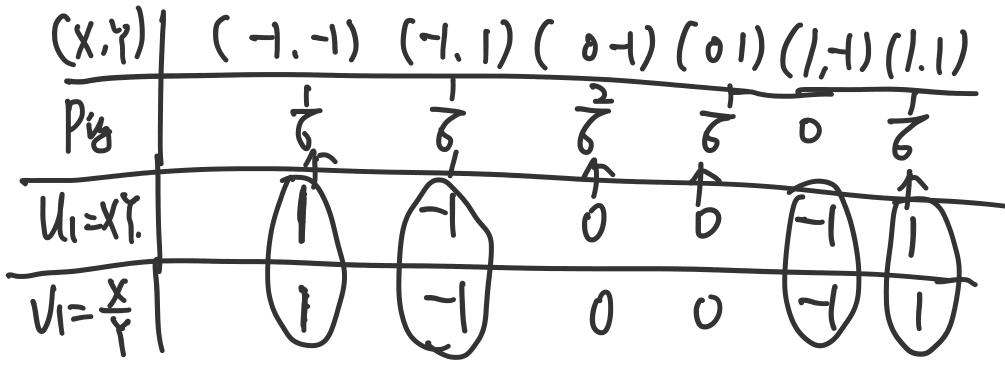 (X,Y) (-1,-1) (-1,1) (0 -1) (0 1) (1,-1) (1.1)
Pij 1/6 1/6 2/6 1/6 0 1/6
U1=XY. 1 -1 0 0 -1 1
V1=X/Y 1 -1 0 0 -1 1